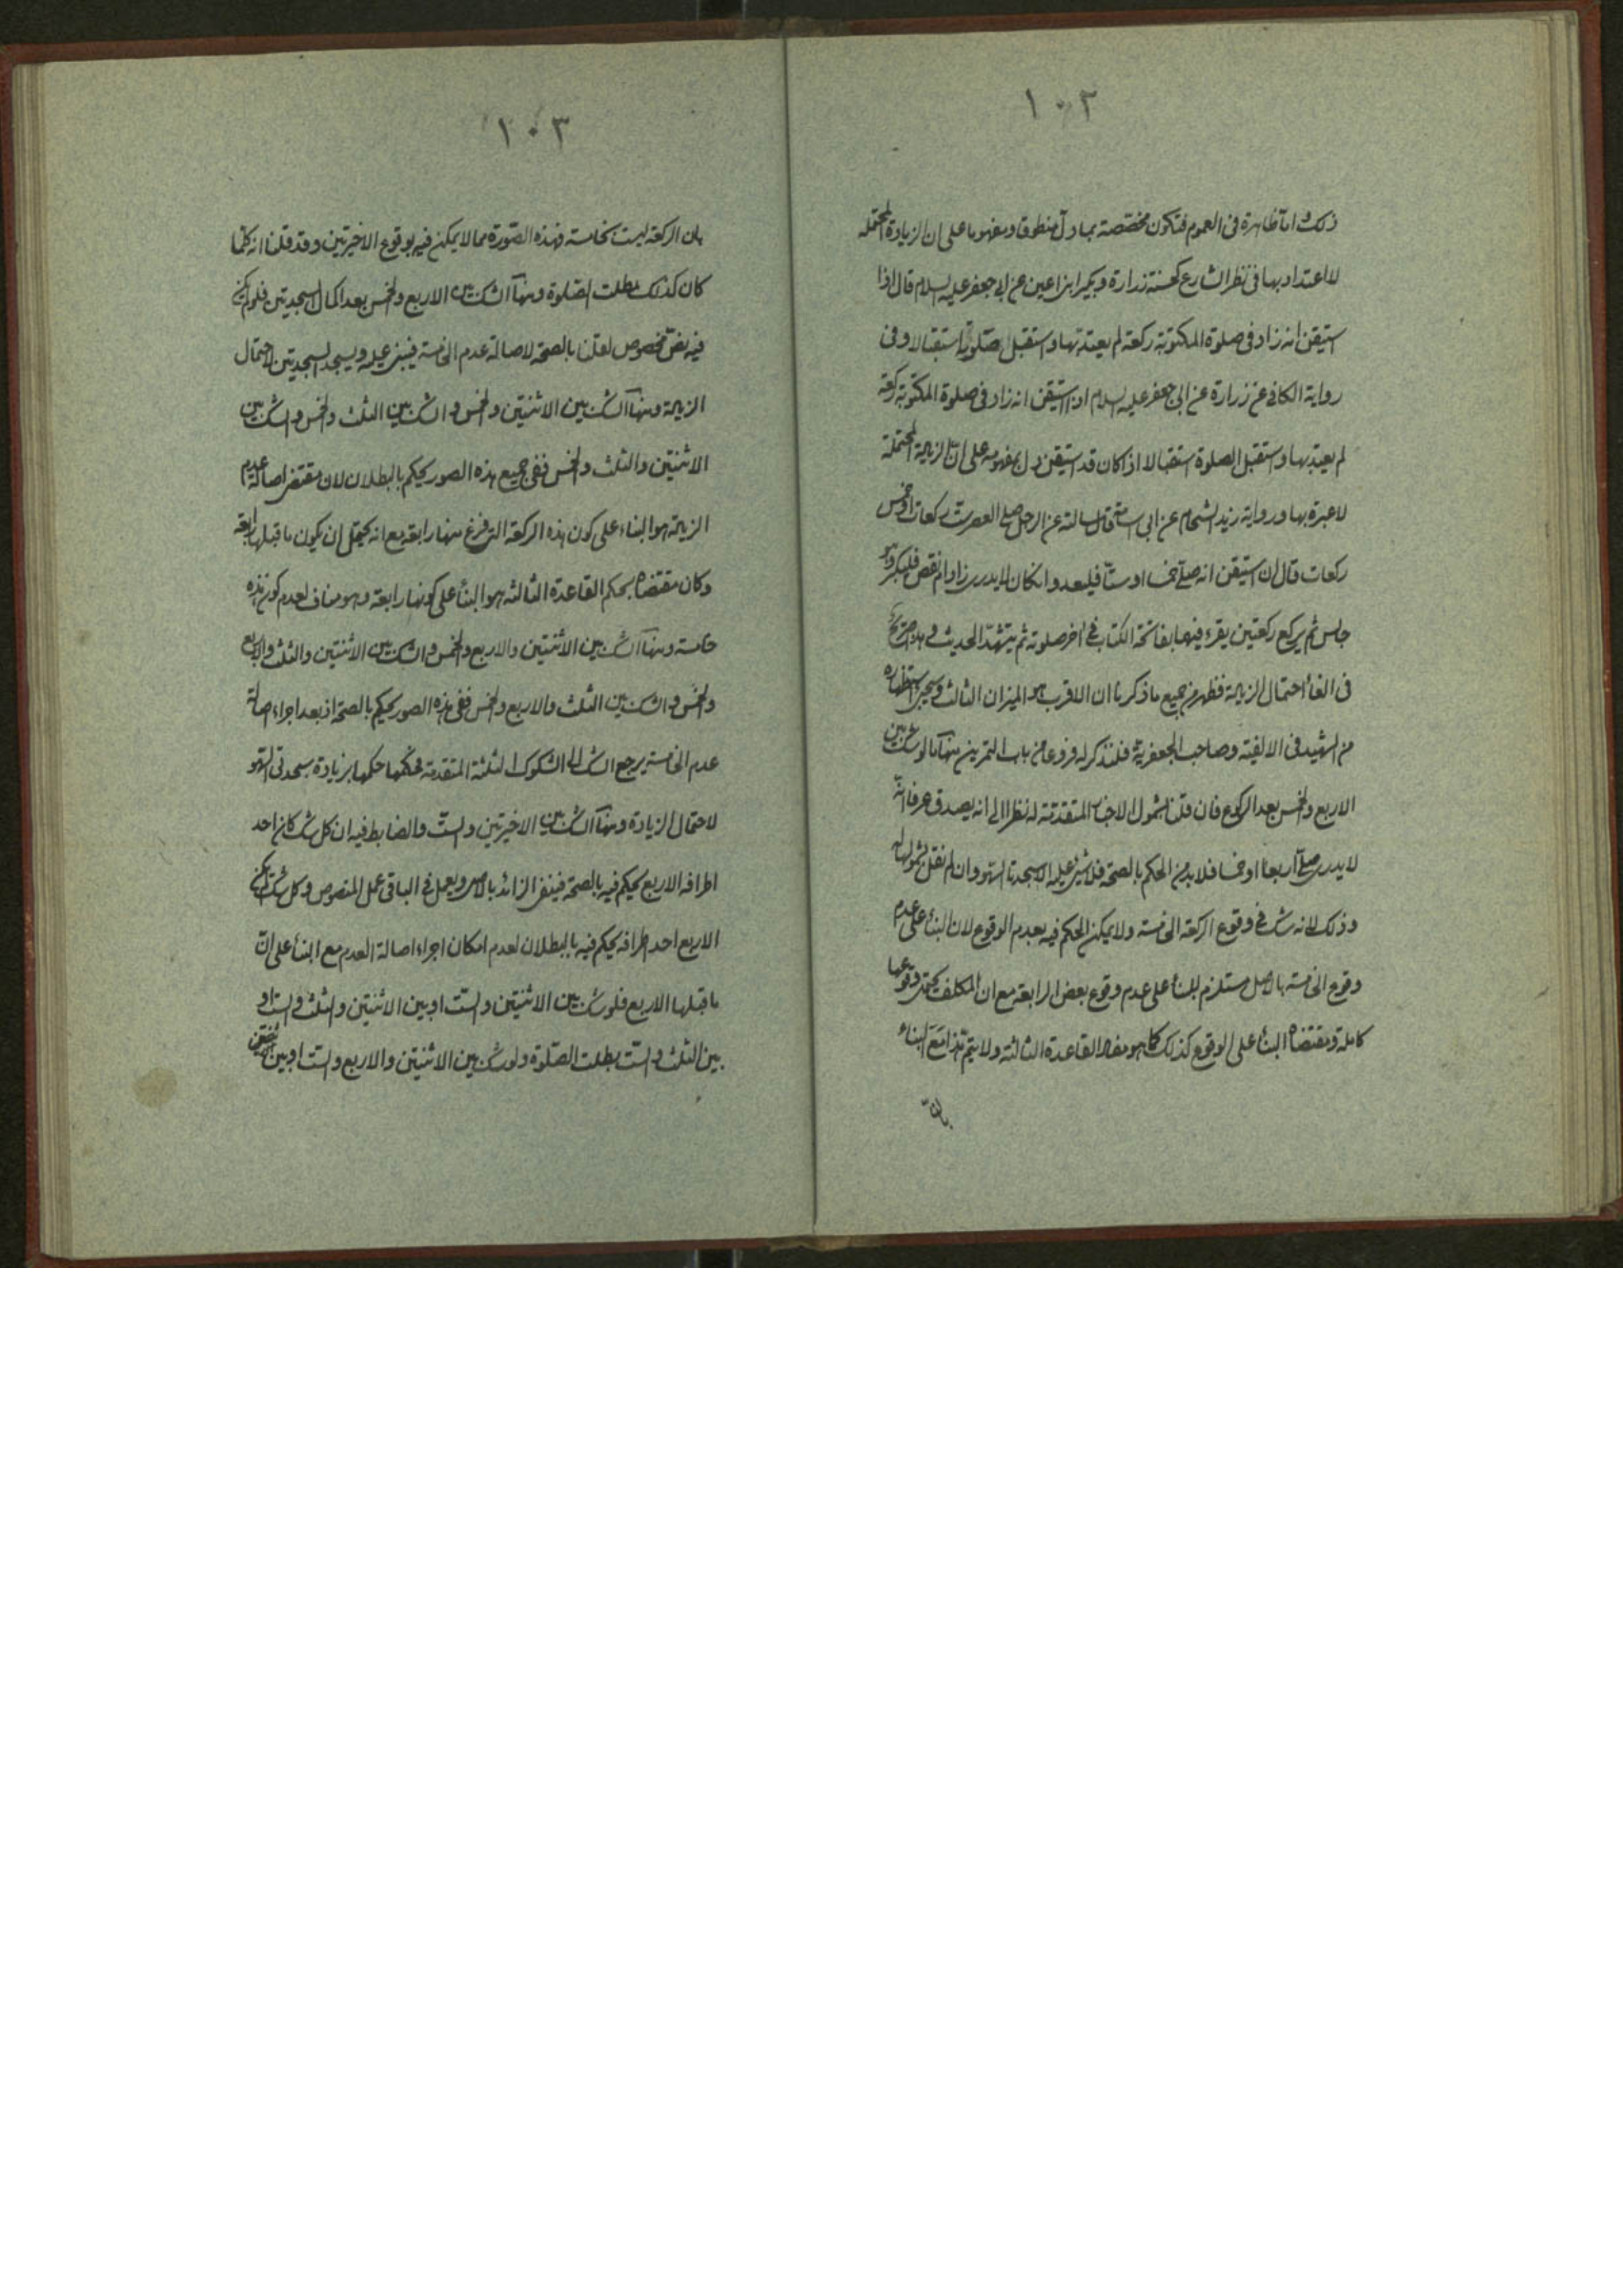 ١٠٢
ذلك واما ظاهرة في العموم فتكون مخصصة بما دل منطوقا ومفهوما على ان الزيادة المحتملة
لا اعتداد بها في نظر الشارع كحسنة زرارة وبكير ابن اعين عن ابي جعفر عليه السلام قال اذا
استيقن انه زاد في صلوة المكتوبة ركعة لم يعتد بها واستقبل صلوته استقبالا وفي
رواية الكافي عن زرارة عن ابي جعفر عليه السلام اذا استيقن انه زاد في صلوة المكتوبة ركعة
لم يعتد بها واستقبل الصلوة استقبالا اذا كان قد استيقن دل بمفهومه على ان الزيادة المحتملة
لا عبرة بها ورواية زيد الشحام عن ابي اسامة قال سالته عن الرجل صلى العصر ست ركعات او خمس
ركعات قال ان استيقن انه صلى خمسا او ستا فليعد وان كان لا يدرى زاد ام نقص فليكبر وهو
جالس ثم يركع ركعتين يقرء فيهما بفاتحة الكتاب في آخر صلوته ثم يتشهد الحديث وهو صريح
في الغاء احتمال الزيادة فظهر من جميع ما ذكرنا ان الاقرب هو الميزان الثالث وسيجئ استظهاره
من الشهيد في الالفية وصاحب الجعفرية فلنذكر له فروعا من باب التمرين منها ما لو شك بين
الاربع والخمس بعد الركوع فان قلنا بشمول الاخبار المتقدمة له نظرا الى انه يصدق عرفا انه
لا يدرى صلى اربعا او خمسا فلا بد من الحكم بالصحة فلا شئ عليه الا سجدتا السهو وان لم نقل بشمولها له
وذلك لانه شك في وقوع الركعة الخامسة ولا يمكن الحكم فيه بعدم الوقوع لان البناء على عدم
وقوع الخامسة بالاصل مستلزم للبناء على عدم وقوع بعض الرابعة مع ان المكلف يحتمل وقوعها
كاملة ومقتضاه البناء على الوقوع كذلك كما هو مفاد القاعدة الثالثة ولا يتم هذا مع البناء
بان
١٠٣
بان الركعة ليست بخامسة فهذه الصورة مما لا يمكن فيه بوقوع الاخيرتين وقد قلنا انه كلما
كان كذلك بطلت الصلوة ومنها الشك بين الاربع والخمس بعد اكمال السجدتين فلو لم يكن
فيه نص مخصوص لقلنا بالصحة لاصالة عدم الخامسة فيبنى عليه ويسجد السجدتين لاحتمال
الزيادة ومنها الشك بين الاثنتين والخمس والشك بين الثلث والخمس والشك بين
الاثنتين والثلث والخمس ففي جميع هذه الصور يحكم بالبطلان لان مقتضى اصالة عدم
الزيادة هو البناء على كون هذه الركعة التي فرغ منها رابعة مع انه يحتمل ان يكون ما قبلها رابعة
وكان مقتضاه بحكم القاعدة الثالثة هو البناء على كونها رابعة وهو مناف لعدم كون هذه
خامسة ومنها الشك بين الاثنتين والاربع والخمس والشك بين الاثنتين والثلث والاربع
والخمس والشك بين الثلث والاربع والخمس ففي هذه الصور يحكم بالصحة اذ بعد اجراء اصالة
عدم الخامسة يرجع الشك الى الشكوك الثلثة المتقدمة فحكمها حكمها بزيادة سجدتي السهو
لاحتمال الزيادة ومنها الشك بين الاخيرتين والست والضابط فيه ان كل شك كان احد
اطرافه الاربع يحكم فيه بالصحة فينفى الزائد بالاصل ويعمل في الباقي عمل المنصوص وكل شك لم يكن
الاربع احد اطرافه يحكم فيه بالبطلان لعدم امكان اجراء اصالة العدم مع البناء على ان
ما قبلها الاربع فلو شك بين الاثنتين والست او بين الاثنتين والثلث والست او
بين الثلث والست بطلت الصلوة ولو شك بين الاثنتين والاربع والست او بين الاثنتين